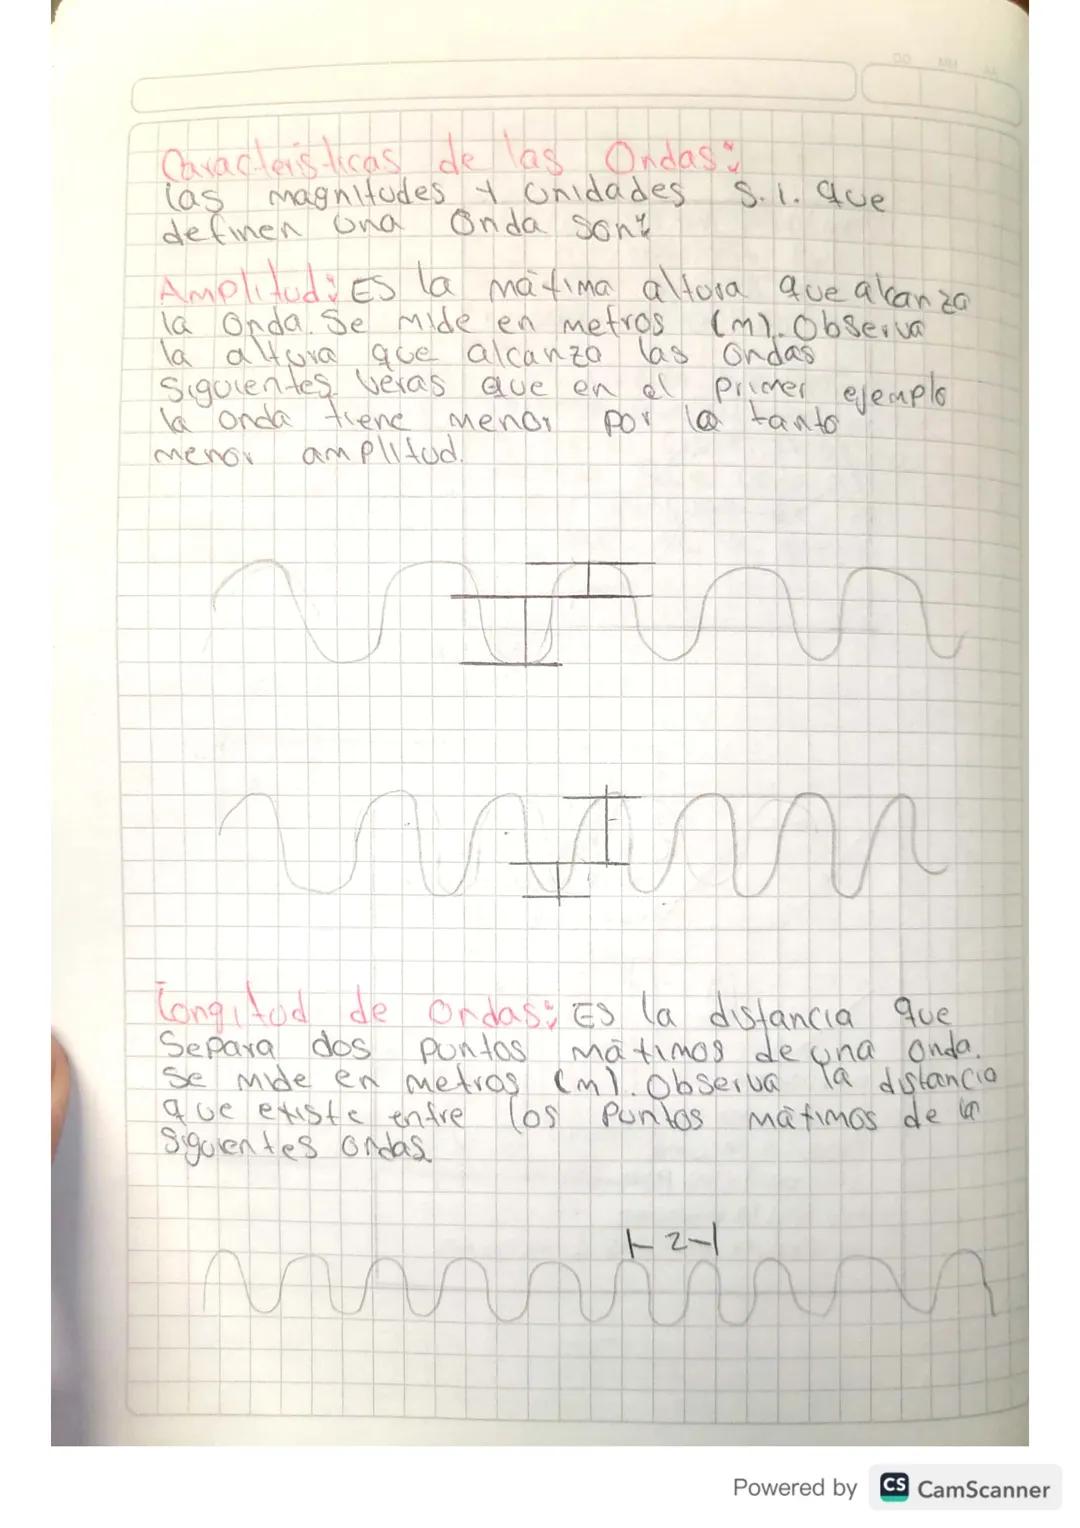 DD MM AA
Caracteristicas de las Ondas:
las magnitudes y unidades S.I. que
definen una Onda son:
Amplitud: Es la máxima altura que alcanza
la Onda. Se mide en metros (m). Observa
la altura que alcanza las Ondas
Siguientes. Veras que en el primer ejemplo
la onda tiene menor por lo tanto
menor amplitud.
Longitud de Ondas: Es la distancia que
Separa dos puntos máximos de una Onda.
Se mide en metros (m). Observa la distancia
que existe entre los puntos máximos de la
siguientes Ondas.
2
Powered by CS CamScanner